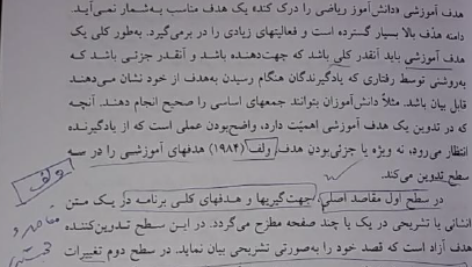 هدف آموزشی «دانش‌آموز ریاضی را درک کند» یک هدف مناسب به‌شمار نمی‌آید.
دامنه هدف بالا بسیار گسترده است و فعالیتهای زیادی را در برمی‌گیرد. به‌طور کلی یک
هدف آموزشی باید آنقدر کلی باشد که جهت‌دهنده باشد و آنقدر جزئی باشد که
به‌روشنی توسط رفتاری که یادگیرندگان هنگام رسیدن به‌هدف از خود نشان می‌دهند
قابل بیان باشد. مثلاً دانش‌آموزان بتوانند جمعهای اساسی را صحیح انجام دهند. آنچه
که در تدوین یک هدف آموزشی اهمیّت دارد، واضح‌بودن عملی است که از یادگیرنده
انتظار می‌رود، نه ویژه یا جزئی‌بودن هدف. ولف (۱۹۸۴) هدفهای آموزشی را در سه
سطح تدوین می‌کند.
ولف
در سطح اول مقاصد اصلی، جهت‌گیریها و هدفهای کلی برنامه در یک متن
انشائی یا تشریحی در یک یا چند صفحه مطرح می‌گردد. در این سطح تدوین‌کننده
هدف آزاد است که قصد خود را به‌صورتی تشریحی بیان نماید. در سطح دوم تغییرات
مقاصد و